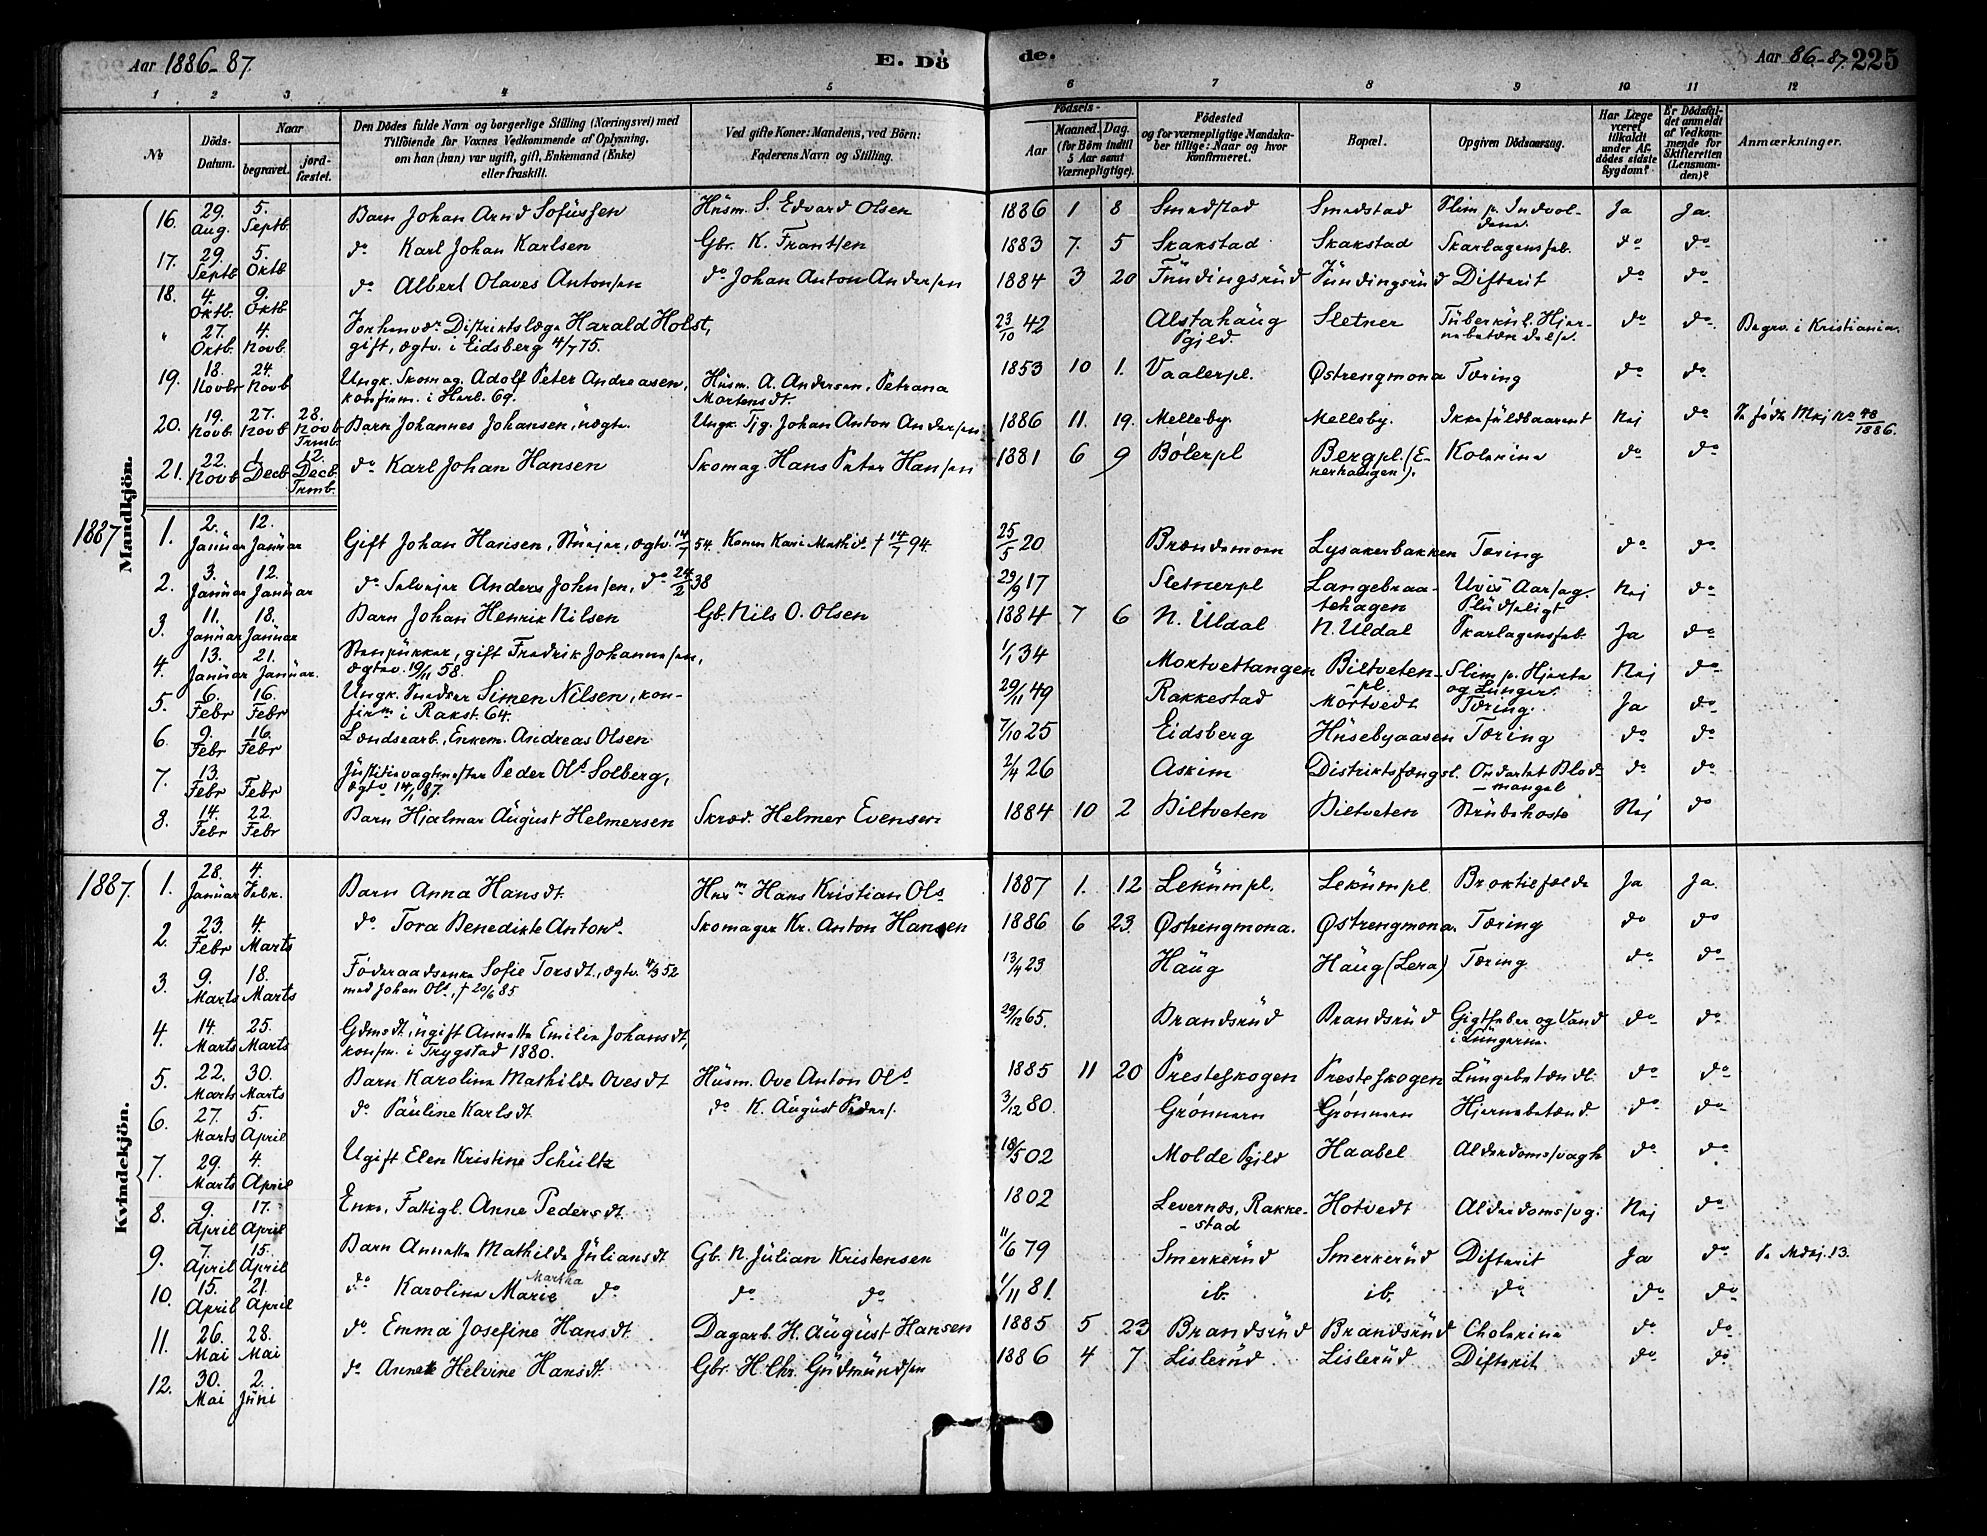 Aar 1886-87. E. Dö
de. Aar 86-87. 225
1 2 3 4 5 6 7 8 9 10 11 12
No Döds-Datum. Naar begravet. jord-fæstet.
Den Dödes fulde Navn og borgerlige Stilling (Næringsvei) med
Tilföiende for Voxnes Vedkommende af Oplysning,
om han (hun) var ugift, gift, Enkemand (Enke)
eller fraskilt.
Ved gifte Koner: Mandens, ved Börn:
Faderens Navn og Stilling.
Födsels-
Aar Maaned. Dag.
(for Börn indtil
5 Aar samt
Værnepligtige).
Födested
og for værnepligtige Mandska-
ber tillige: Naar og hvor
konfirmeret.
Bopæl.
Opgiven Dödsaarsag.
Har Læge
været
tilkaldt
under Af-
dödes sidste
Sygdom?
Er Dödsfal-
det anmeldt
af Vedkom-
mende for
Skifteretten
(Lensman-
den)?
Anmærkninger.
Mandkjön.
16. 29. Aug. 5. Septb. Barn Johan Arnd Sofüssen Hüsm. S. Edvard Olsen 1886 1 8 Smedstad Smedstad Slim p. Indvol-
dene. Ja Ja.
17. 29. Septb 5. Oktb do Karl Johan Karlsen Gbr. K. Frantsen 1883 7. 5 Skakstad Skakstad Skarlagensfeb. do do
18. 4. Oktb. 9. Oktb do Albert Olaves Antonsen do Johan Anton Andersen 1884 3 20 Fündingsrüd Fündingsrüd Difterit do do
" 27. Oktb. 4. Novb. Forhenvær. Distriktslæge Harald Holst,
gift, ægtv. i Eidsberg 4/7 75. 23/10 42 Alstahaüg
Pgjld. Sletner Tüberkül. Hjer-
nebetændelse. do do Begrv. i Kristiania.
19. 18. Novbr 24. Novb Ungk. Skomag. Adolf Peter Andreasen,
konfirm. i Herl. 69. Hüsm. A. Andersen, Petrana
Mortensdt. 1853 10 1. Vaalerpl. Østrengmona Tæring do do
20. 19. Novb. 27. Novb 28. Novb Trmb. Barn Johannes Johansen, üægte. Ungk. Tjg. Johan Anton Andersen 1886 11. 19. Melleby. Melleby. Ikke füldbaarent Nej do Se födte Mkj No 48/1886.
21. 22. Novb 1. Decb 12. Decb. Trmb. do Karl Johan Hansen Skomag. Hans Peter Hansen 1881 6 9 Bølerpl Bergpl. (E-
nerhaugen). Kolerine do do
1887
1. 2. Januar 12. Januar Gift Johan Hansen, Snejer, ægtv. 14/7 54. Konen Kari Mathis. † 14/7 94. 25/5 20 Brændemoen Lysakerbakken Tæring do do
2. 3. Januar 12. Januar do Selvejer Anders Johnsen, do 24/2 38 29/9 17 Sletnerpl Langebraa-
tehagen Uvis Aarsag.
Plüdseligt Nej do
3. 11. Januar 18. Januar Barn Johan Henrik Nilsen Gb. Nils O. Olsen 1884 7 6 N. Üldal N. Uldal Skarlagensfeb. Ja do
4. 13. Januar 21. Januar. Stenpükker, gift Fredrik Johannesen,
ægtev. 19/11 58. 1/1 34 Mortvettangen Biltveten-
pl. Slim p. Hjerte
og Lünger. Nej do
5. 6. Febr 16. Febr Ungk. Smedsv Simen Nilsen, kon-
firm i Rakst. 64. 29/11 49 Rakkestad Mortvedt Tæring. Ja do
6. 9. Febr 16. Febr Landsearb., Enkem. Andreas Olsen 7/10 25 Eidsberg Hüsebyaasen Tæring do do
7. 13. Febr Febr Jüstitsvagtmester Peder Ols Solberg,
ægtv 14/1 87. 2/4 26 Askim Distriktsfængsl. Ondartet Blod-
mangel do do
8. 14. Febr 22. Febr Barn Hjalmar Aügust Helmersen Skræd. Helmer Evensen 1884 10 2 Biltveten Biltveten Strübehoste Nej do
Kvindekjön.
1887.
1. 28. Januar 4. Febr. Barn Anna Hansdt. Husm Hans Kristian Ols 1887 1. 12 Lekümpl. Lekümpl. Broktilfælde Ja Ja.
2. 23. Febr 4. Marts do Tora Benedikte Antons. Skomager Kr. Anton Hansen 1886 6 23. Østrengmona. Østrengmona. Tæring do do
3. 9. Marts 18. Marts Föderaadsenke Sofie Torsdt., ægtv. 4/3 52
med Johan Ols. † 20/6 85 13/4 23 Haüg Haüg (Lera) Tæring do do
4. 14. Marts 25. Marts Gdmsdt. ügift Annette Emilie Johansdt,
konfm. i Trygstad 1880. 29/12 65. Brandsrüd Brandsrüd Gigtfeber og Vand
i Lüngerne. do do
5. 22. Marts 30. Marts Barn Karoline Mathilde Ovesdt Hüsm. Ove Anton Ols 1885 11 20 Presteskogen Presteskogen Lüngebetændt. do do
6. 27. Marts 5. April do Paüline Karlsdt. do K. Aügust Peders. 3/12 80. Grönnern Grönnern Hjernebetænd. do do
7. 29. Marts 4. April Ugift Elen Kristine Schültz 18/5 02 Molde Pgjld Haabel Alderdomssvagh do do
8. 9. April 17. April Enke, Fattigl. Anne Pedersdt. 1802 Levernds, Rakke-
stad Hotvedt Alderdomssvg. Nej do
9. 7. April 15. April Barn Annette Mathilde Jüliansdt Gb. N. Jülian Kristensen 11/6 79 Smerkerüd Smerkerüd Difterit Ja do Se Mdkj. 13.
10. 15. April 21. April do Karoline Marie Martha do do do 1/11 81. ib. ib. do do do
11. 26. Mai 28. Mai do Emma Josefine Hansdt. Dagarb. H. Aügust Hansen 1885 5 23 Brandsrüd Brandsrüd Cholerine do do
12. 30. Mai 2. Jüni do Anne Helvine Hansdt. Gbr. H. Chr. Güdmündsen 1886 4 7 Lislerüd. Lislerüd Difterit do do